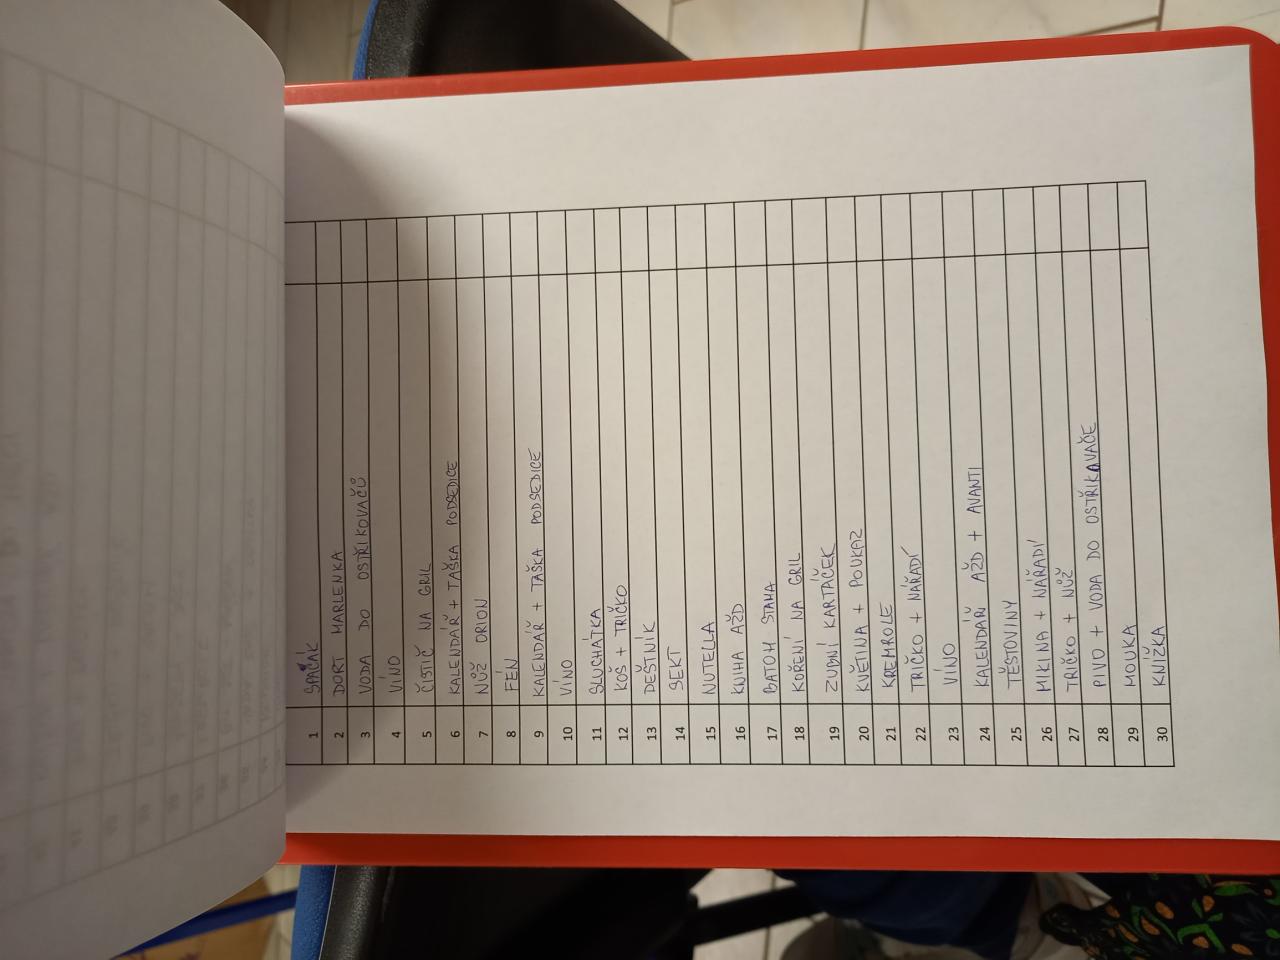 1 SPAČÁK
2 DORT MARLENKA
3 VODA DO OSTŘIKOVAČŮ
4 VÍNO
5 ČISTIČ NA GRIL
6 KALENDÁŘ + TAŠKA PODSEDICE
7 NŮŽ ORION
8 FÉN
9 KALENDÁŘ + TAŠKA PODSEDICE
10 VÍNO
11 SLUCHÁTKA
12 KOŠ + TRIČKO
13 DEŠTNÍK
14 SEKT
15 NUTELLA
16 KNIHA AŽD
17 BATOH STAHA
18 KOŘENÍ NA GRIL
19 ZUBNÍ KARTÁČEK
20 KVĚTINA + POUKAZ
21 KREMROLE
22 TRIČKO + NÁŘADÍ
23 VÍNO
24 KALENDÁŘ AŽD + AVANTI
25 TĚSTOVINY
26 MIKINA + NÁŘADÍ
27 TRIČKO + NŮŽ
28 PIVO + VODA DO OSTŘIKAVAČE
29 MOUKA
30 KNÍŽKA